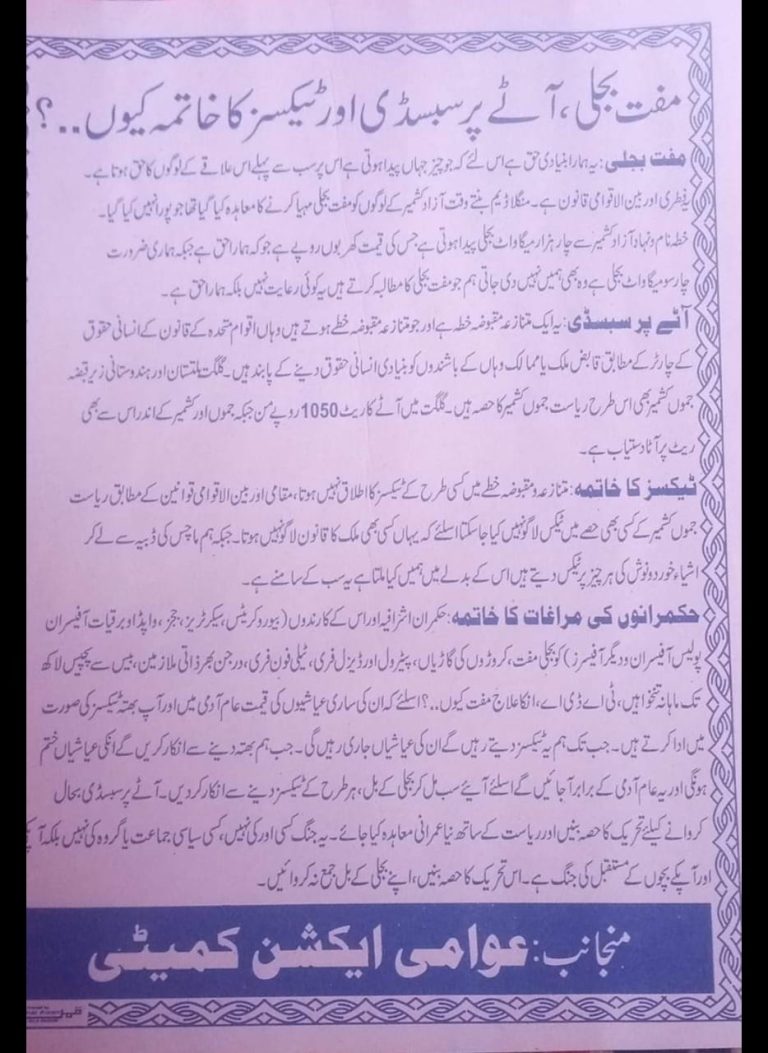 مفت بجلی، آٹے پر سبسڈی اور ٹیکسز کا خاتمہ کیوں..؟
مفت بجلی: یہ ہمارا بنیادی حق ہے اس لئے کہ جو چیز جہاں پیدا ہوتی ہے اس پر سب سے پہلے اس علاقے کے لوگوں کا حق ہوتا ہے۔
یہ فطری اور بین الاقوامی قانون ہے۔ منگلا ڈیم بنتے وقت آزاد کشمیر کے لوگوں کو مفت بجلی مہیا کرنے کا معاہدہ کیا گیا تھا جو پورا نہیں کیا گیا۔
خطہ نام و نہاد آزاد کشمیر سے چار ہزار میگا واٹ بجلی پیدا ہوتی ہے جس کی قیمت کھربوں روپے ہے جو کہ ہمارا حق ہے جبکہ ہماری ضرورت
چار سو میگا واٹ بجلی ہے وہ بھی ہمیں نہیں دی جاتی ہم جو مفت بجلی کا مطالبہ کرتے ہیں یہ کوئی رعایت نہیں بلکہ ہمارا حق ہے۔
آٹے پر سبسڈی: یہ ایک متنازعہ مقبوضہ خطہ ہے اور جو متنازعہ مقبوضہ خطے ہوتے ہیں وہاں اقوام متحدہ کے قانون کے انسانی حقوق
کے چارٹر کے مطابق قابض ملک یا ممالک وہاں کے باشندوں کو بنیادی انسانی حقوق دینے کے پابند ہیں۔ گلگت بلتستان اور ہندوستانی زیر قبضہ
جموں کشمیر بھی اس طرح ریاست جموں کشمیر کا حصہ ہیں۔ گلگت میں آٹے کا ریٹ 1050 روپے من جبکہ جموں اور کشمیر کے اندر اس سے بھی
ریٹ پر آٹا دستیاب ہے۔
ٹیکسز کا خاتمہ: متنازعہ و مقبوضہ خطے میں کسی طرح کے ٹیکسز کا اطلاق نہیں ہوتا، مقامی اور بین الاقوامی قوانین کے مطابق ریاست
جموں کشمیر کے کسی بھی حصے میں ٹیکس لاگو نہیں کیا جا سکتا اسلئے کہ یہاں کسی بھی ملک کا قانون لاگو نہیں ہوتا۔ جبکہ ہم ماچس کی ڈبیہ سے لے کر
اشیاء خورد و نوش کی ہر چیز پر ٹیکس دیتے ہیں اس کے بدلے میں ہمیں کیا ملتا ہے یہ سب کے سامنے ہے۔
حکمرانوں کی مراعات کا خاتمہ: حکمران اشرافیہ اور اس کے کارندوں (بیوروکریٹس، سیکرٹریز، ججز، واپڈا و برقیات آفیسران
پولیس آفیسران و دیگر آفیسرز) کو بجلی مفت، کروڑوں کی گاڑیاں، پیٹرول اور ڈیزل فری، ٹیلی فون فری، درجن بھر ذاتی ملازمین، بیس سے پچیس لاکھ
تک ماہانہ تنخواہیں، ٹی اے ڈی اے، انکا علاج مفت کیوں..؟ اسلئے کہ ان کی ساری عیاشیوں کی قیمت عام آدمی میں اور آپ بھتہ ٹیکسز کی صورت
میں ادا کرتے ہیں۔ جب تک ہم یہ ٹیکسز دیتے رہیں گے ان کی عیاشیاں جاری رہیں گی۔ جب ہم بھتہ دینے سے انکار کریں گے انکی عیاشیاں ختم
ہونگی اور یہ عام آدمی کے برابر آجائیں گے اسلئے آیئے سب مل کر بجلی کے بل، ہر طرح کے ٹیکسز دینے سے انکار کر دیں۔ آٹے پر سبسڈی بحال
کروانے کیلئے تحریک کا حصہ بنیں اور ریاست کے ساتھ نیا عمرانی معاہدہ کیا جائے۔ یہ جنگ کسی اور کی نہیں، کسی سیاسی جماعت یا گروہ کی نہیں بلکہ آپکے
اور آپکے بچوں کے مستقبل کی جنگ ہے۔ اس تحریک کا حصہ بنیں، اپنے بجلی کے بل جمع نہ کروائیں۔
منجانب: عوامی ایکشن کمیٹی